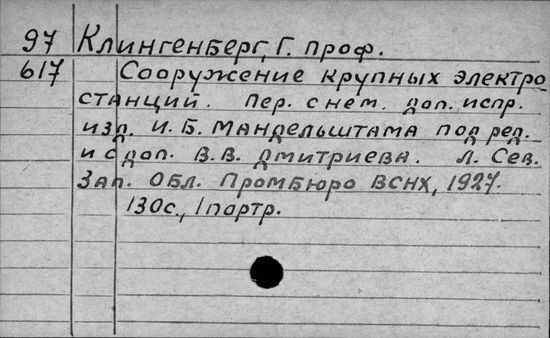 97 Клингенберг, Г. проф.
617 Сооружение крупных электро
станций. Пер. с нем. доп. испр.
изд. И. Б. Мандельштама под ред.
и с доп. В. В. Дмитриева. Л. Сев.
Зап. Обл. Промбюро ВСНХ, 1927.
130с., 1 портр.